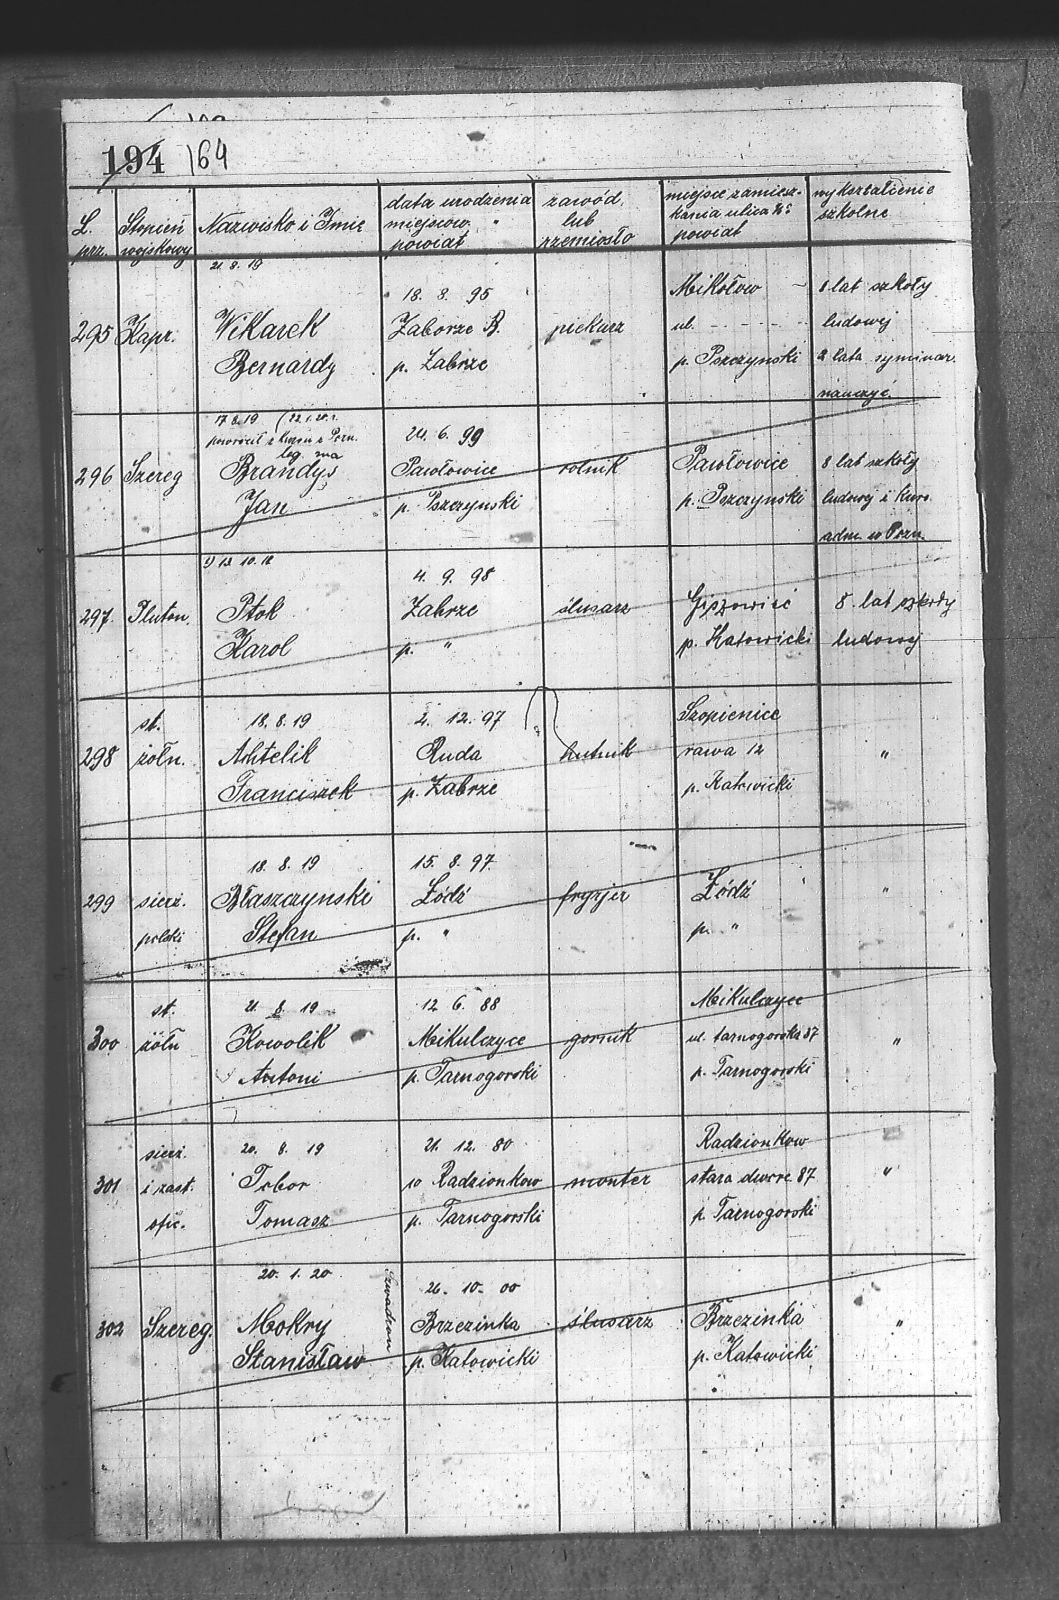 194 164
L. prz.
Stopień wojskowy
Nazwisko i Imię
data urodzenia miejscow. powiat
zawód lub rzemiosło
miejsce zamieszkania ulica No powiat
wykształcenie szkolne
21. 8. 19
295 Kapr.
Wikarek
Bernardy
18. 8. 95
Zaborze B.
p. Zabrze
piekarz
Mikołow
ul. - - - - - -
p. Pszczynski
8 lat szkoły
ludowej
2 lata syminar.
nauczyc.
17 8. 19
powrócił z Kursu z Pozn.
leg. ma
296 Szereg
Brandys
Jan
24. 6. 99
Pawłowice
p. Pszczynski
rolnik
Pawłowice
p. Pszczynski
8 lat szkoły
ludowej i Kurs
adm. w Pozn.
13. 10. 18
297. Pluton.
Ptok
Karol
4. 9. 98
Zabrze
p. "
ślusarz
p. Katowicki
8. lat szkoły
ludowej
298
st.
żołn.
18. 8. 19
Achtelik
Franciszek
2. 12. 97
Ruda
p. Zabrze
hutnik
Szopienice
rawa 12
p. Katowicki
"
299
sierż.
polski
18. 8. 19
Błaszczynski
Stefan
15. 8. 97.
Łódź
p. "
fryzjer
Łódź
p. "
"
300
st.
żołn
21 8. 19
Kowolik
Antoni
12 6. 88
Mikulczyce
p. Tarnogorski
gornik
Mikulczyce
ul. tarnogorska 37
p. Tarnogorski
"
301
sierż.
i zast.
ofic.
20. 8. 19
Tobor
Tomasz
21. 12. 80
w Radzionkow
p. Tarnogorski
monter
Radzionkow
p. Tarnogorski
"
302 Szereg.
20. 1. 20
Mokry
Stanisław
Szwadron
26. 10. 00
Brzezinka
p. Katowicki
ślusarz
Brzezinka
p. Katowicki
"